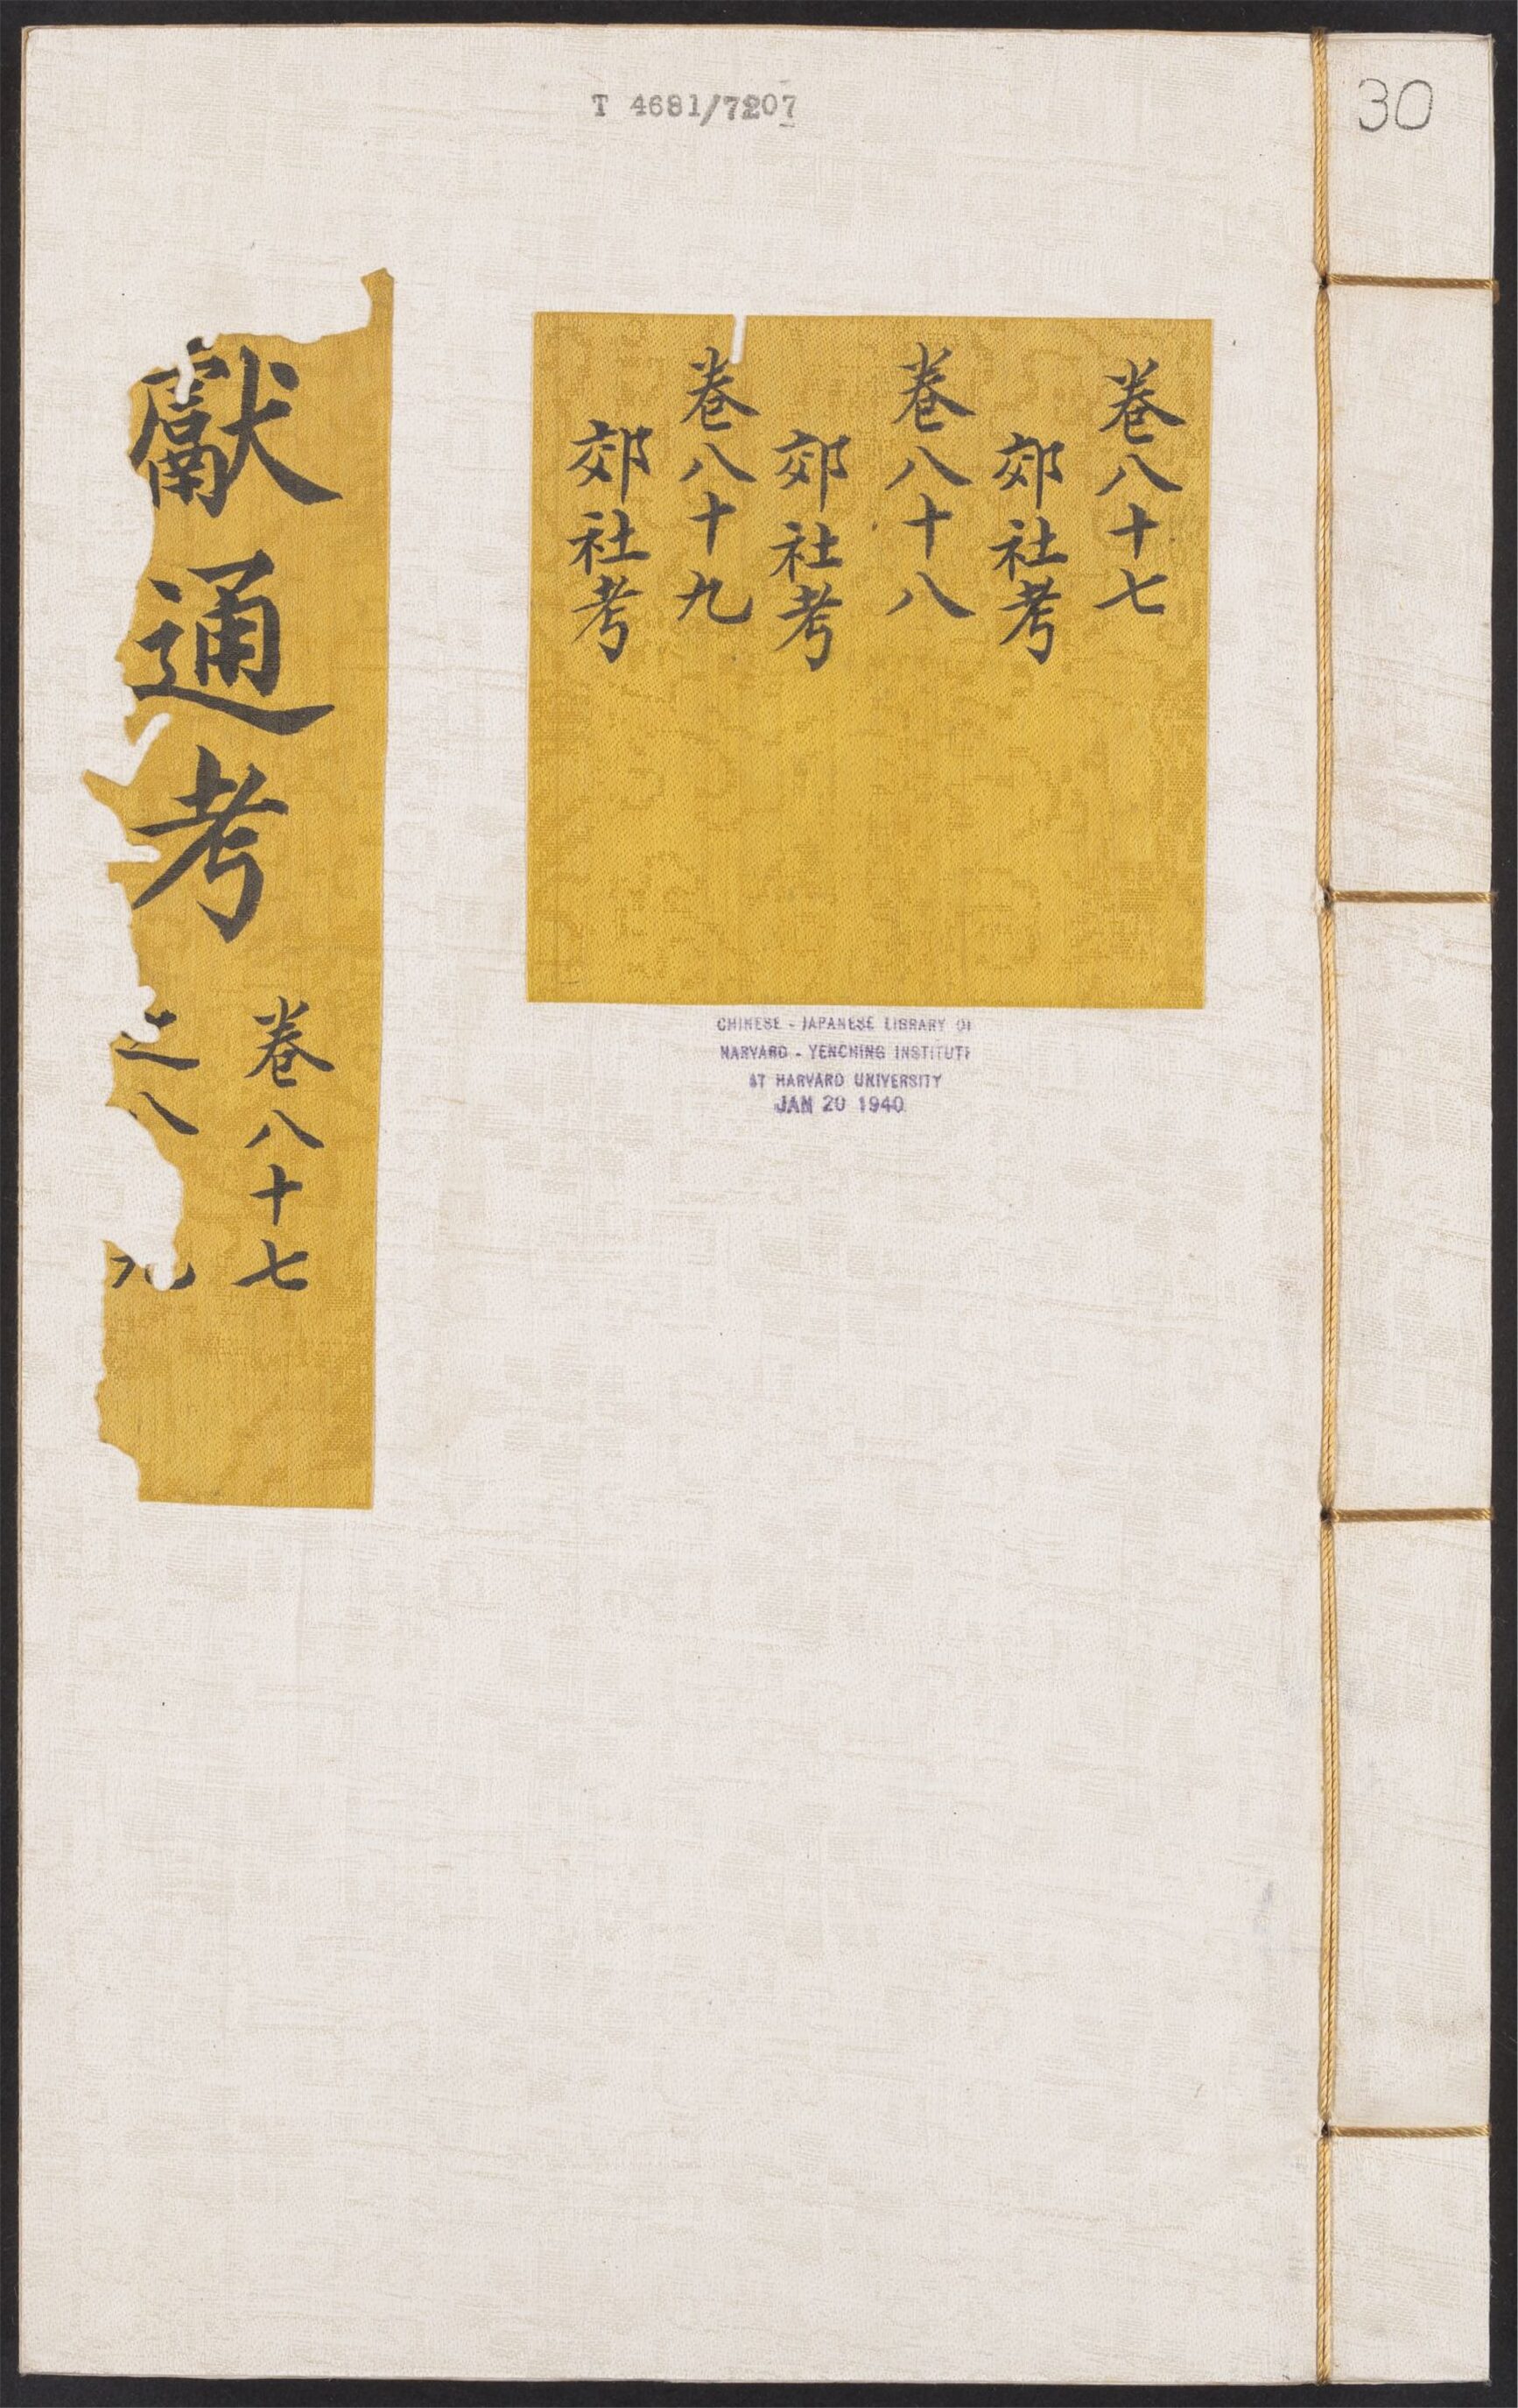 T 4681/7207
30
卷八十七
郊社考
卷八十八
郊社考
卷八十九
郊社考
獻通考
卷八十七
之八 九
CHINESE - JAPANESE LIBRARY OF
HARVARD - YENCHING INSTITUTE
AT HARVARD UNIVERSITY
JAN 20 1940